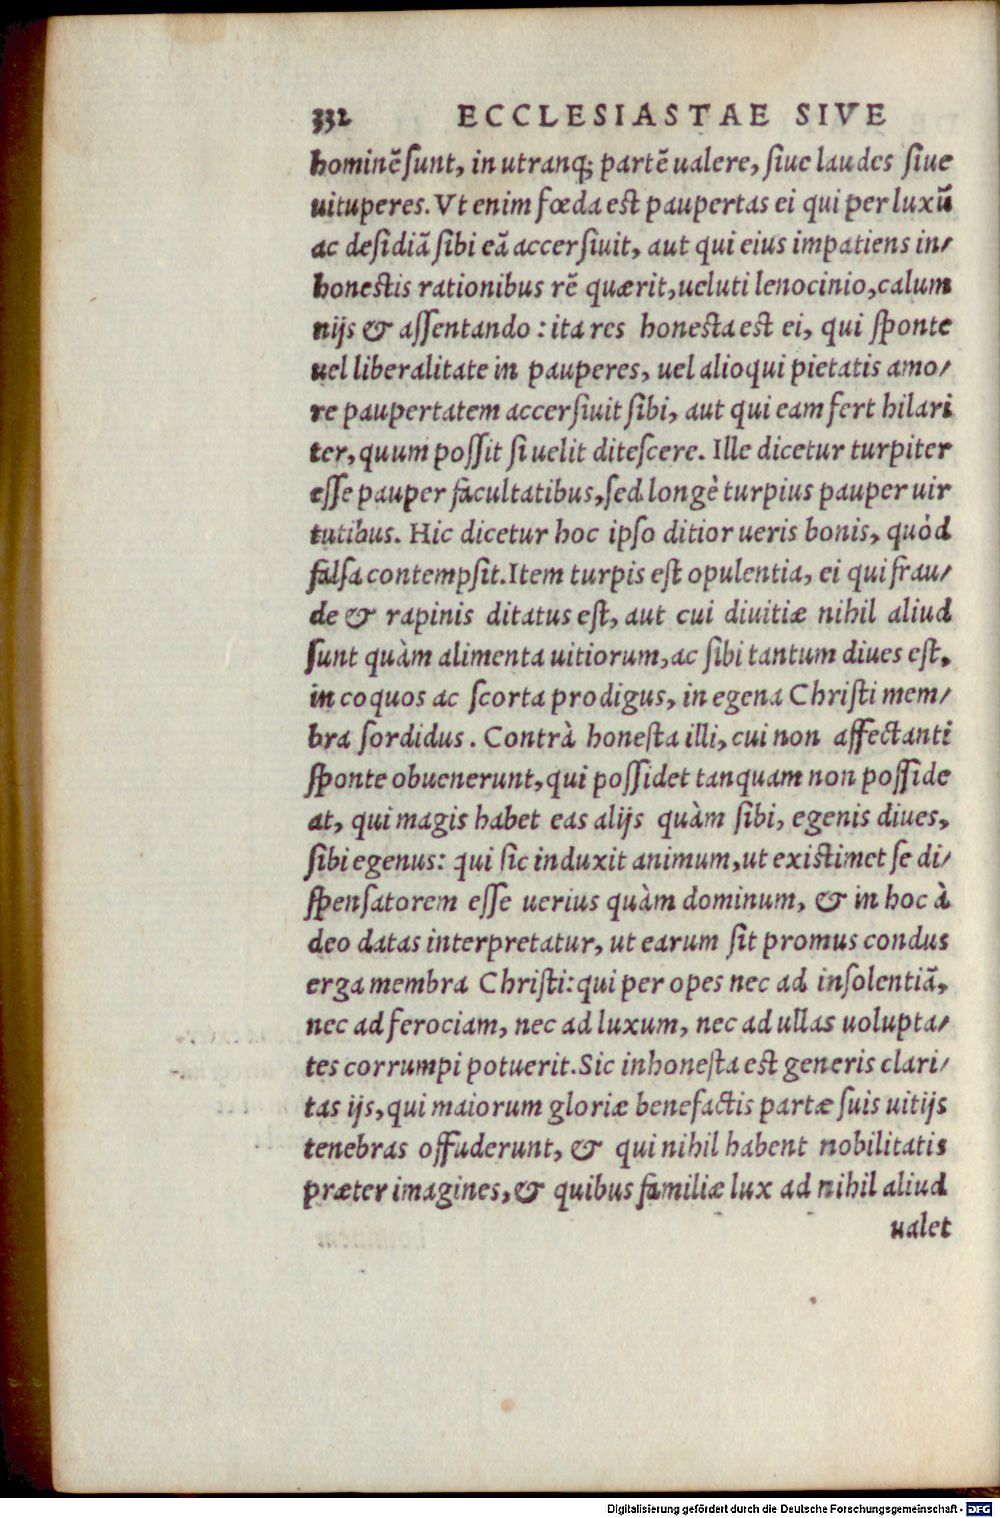 332 ECCLESIASTAE SIVE
hominẽ sunt, in utranq; partẽ ualere, siue laudes siue
uituperes. Vt enim fœda est paupertas ei qui per luxũ
ac desidiã sibi eã accersiuit, aut qui eius impatiens in/
honestis rationibus rẽ quærit, ueluti lenocinio, calum
nijs & assentando : ita res honesta est ei, qui sponte
uel liberalitate in pauperes, uel alioqui pietatis amo/
re paupertatem accersiuit sibi, aut qui eam fert hilari
ter, quum possit si uelit ditescere. Ille dicetur turpiter
esse pauper facultatibus, sed longè turpius pauper uir
tutibus. Hic dicetur hoc ipso ditior ueris bonis, quòd
falsa contempsit. Item turpis est opulentia, ei qui frau/
de & rapinis ditatus est, aut cui diuitiæ nihil aliud
sunt quàm alimenta uitiorum, ac sibi tantum diues est,
in coquos ac scorta prodigus, in egena Christi mem/
bra sordidus. Contrà honesta illi, cui non affectanti
sponte obuenerunt, qui possidet tanquam non posside
at, qui magis habet eas alijs quàm sibi, egenis diues,
sibi egenus: qui sic induxit animum, ut existimet se di/
spensatorem esse uerius quàm dominum, & in hoc à
deo datas interpretatur, ut earum sit promus condus
erga membra Christi: qui per opes nec ad insolentiã,
nec ad ferociam, nec ad luxum, nec ad ullas uolupta/
tes corrumpi potuerit. Sic inhonesta est generis clari/
tas ijs, qui maiorum gloriæ benefactis partæ suis uitijs
tenebras offuderunt, & qui nihil habent nobilitatis
præter imagines, & quibus familiæ lux ad nihil aliud
ualet
Digitalisierung gefördert durch die Deutsche Forschungsgemeinschaft - DFG